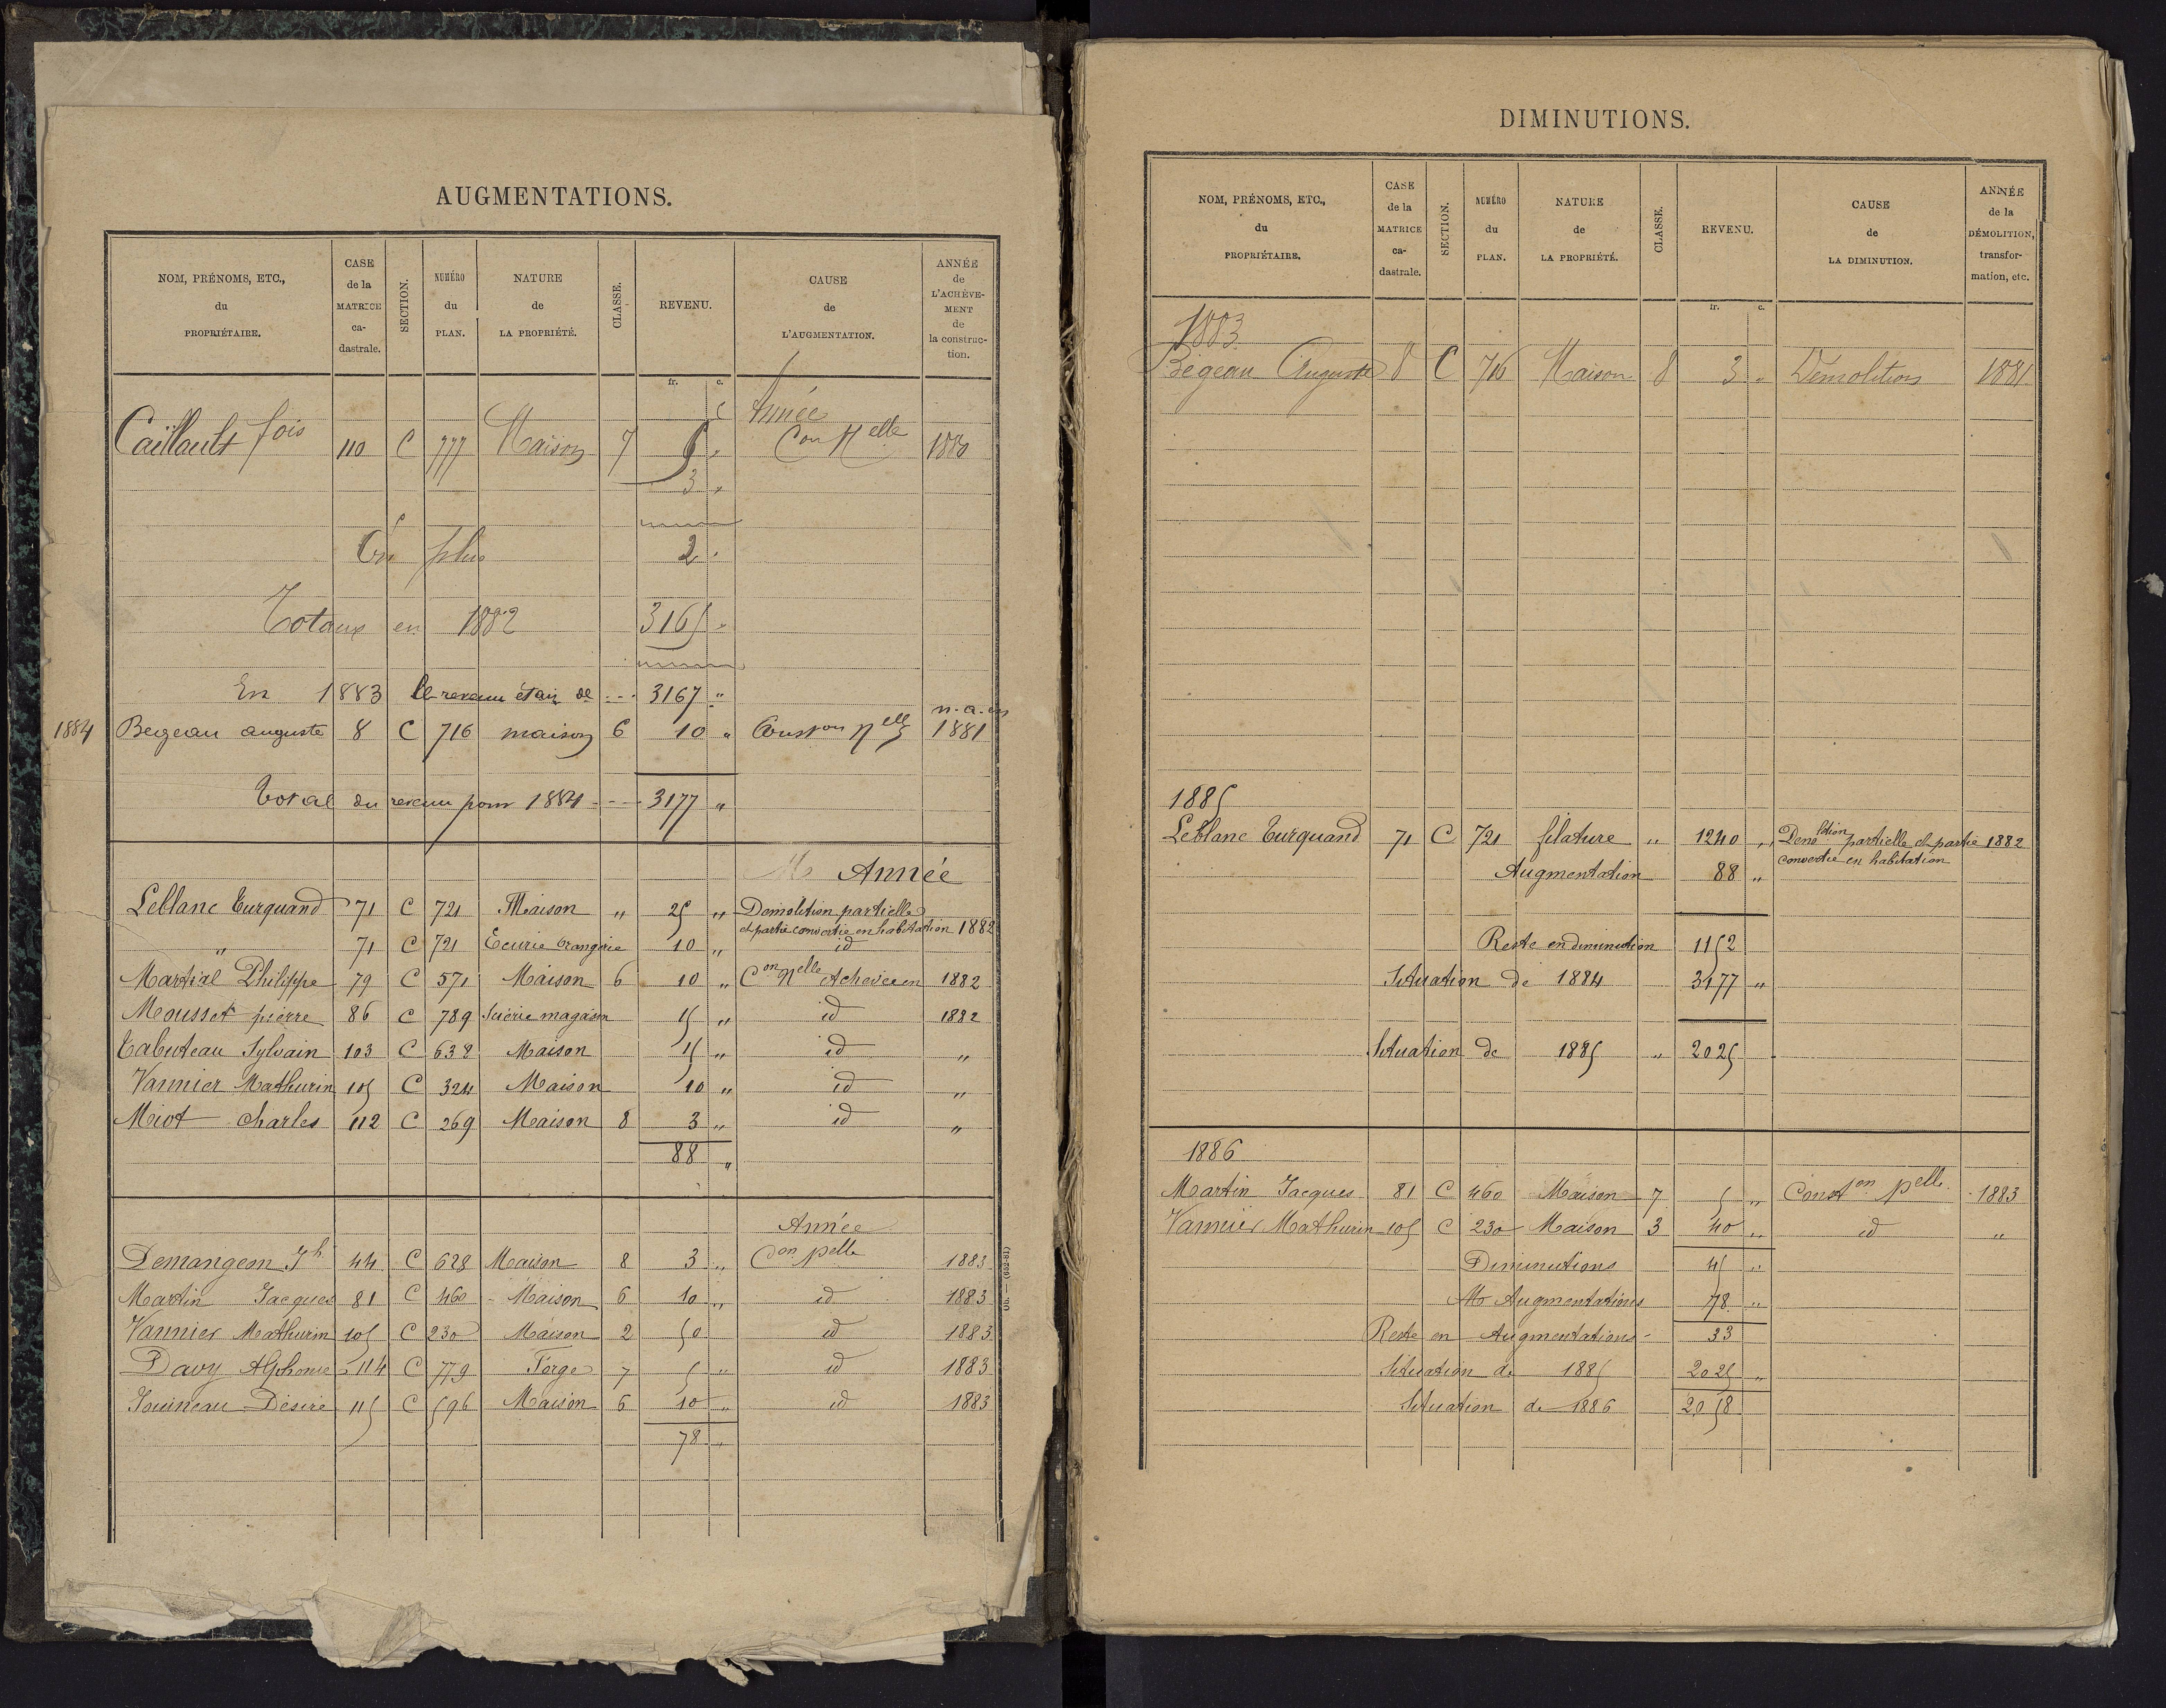 AUGMENTATIONS.
NOM, PRÉNOMS, ETC., du PROPRIÉTAIRE. | CASE de la MATRICE ca-dastrale. | SECTION. | NUMÉRO du PLAN. | NATURE de LA PROPRIÉTÉ. | CLASSE. | REVENU. | CAUSE de L'AUGMENTATION. | ANNÉE de L'ACHÈVE-MENT de la construc-tion.
fr. c.
Année
Caillault fois 110 C 777 Maison 7 5 " Con Nelle 1880
3 "
En plus 2 "
Totaux en 1882 3165 "
En 1883 le revenu était de 3167 "
n. a. en
1884 Begeau auguste 8 C 716 maison 6 10 " Conston Nelle 1881
Total du revenu pour 1884 3177 "
Année
Leblanc Turquand 71 C 721 Maison " 25 " Demolition partielle
et partie convertie en habitation 1882
" 71 C 721 Écurie Grangerie 10 " id
Martial Philippe 79 C 571 Maison 6 10 " Con Nelle Achevée en 1882
Mousset pierre 86 C 789 Scierie magasin 15 " id 1882
Tabuteau Sylvain 103 C 638 Maison 15 " id "
Vannier Mathurin 105 C 324 Maison 10 " id "
Miot charles 112 C 269 Maison 8 3 " id "
88 "
Année
Demangeon Jh 44 C 628 Maison 8 3 " Con pelle 1883
Martin Jacques 81 C 460 Maison 6 10 " id 1883
Vannier Mathurin 105 C 230 Maison 2 50 id 1883
Davy Alphonse 114 C 779 Forge 7 5 " id 1883
Jouineau Désiré 115 C 596 Maison 6 10 " id 1883
78 "
DIMINUTIONS.
NOM, PRÉNOMS, ETC., du PROPRIÉTAIRE. | CASE de la MATRICE ca-dastrale. | SECTION. | NUMÉRO du PLAN. | NATURE de LA PROPRIÉTÉ. | CLASSE. | REVENU. | CAUSE de LA DIMINUTION. | ANNÉE de la DÉMOLITION, transfor-mation, etc.
fr. c.
1883
Bégeau Auguste 8 C 716 Maison 8 3 " Démolition 1881
1885
Leblanc Turquand 71 C 721 filature " 1240 " Demolition partielle et partie 1882
convertie en habitation
Augmentation 88 "
Reste en diminution 1152
Situation de 1884 3177 "
Situation de 1885 " 2025
1886
Martin Jacques 81 C 460 Maison 7 5 " Conston pelle 1883
Vannier Mathurin 105 C 230 Maison 3 40 " id "
Diminutions 45 "
Augmentations 78 "
Reste en Augmentations - 33
Situation de 1885 2025 "
Situation de 1886 2058